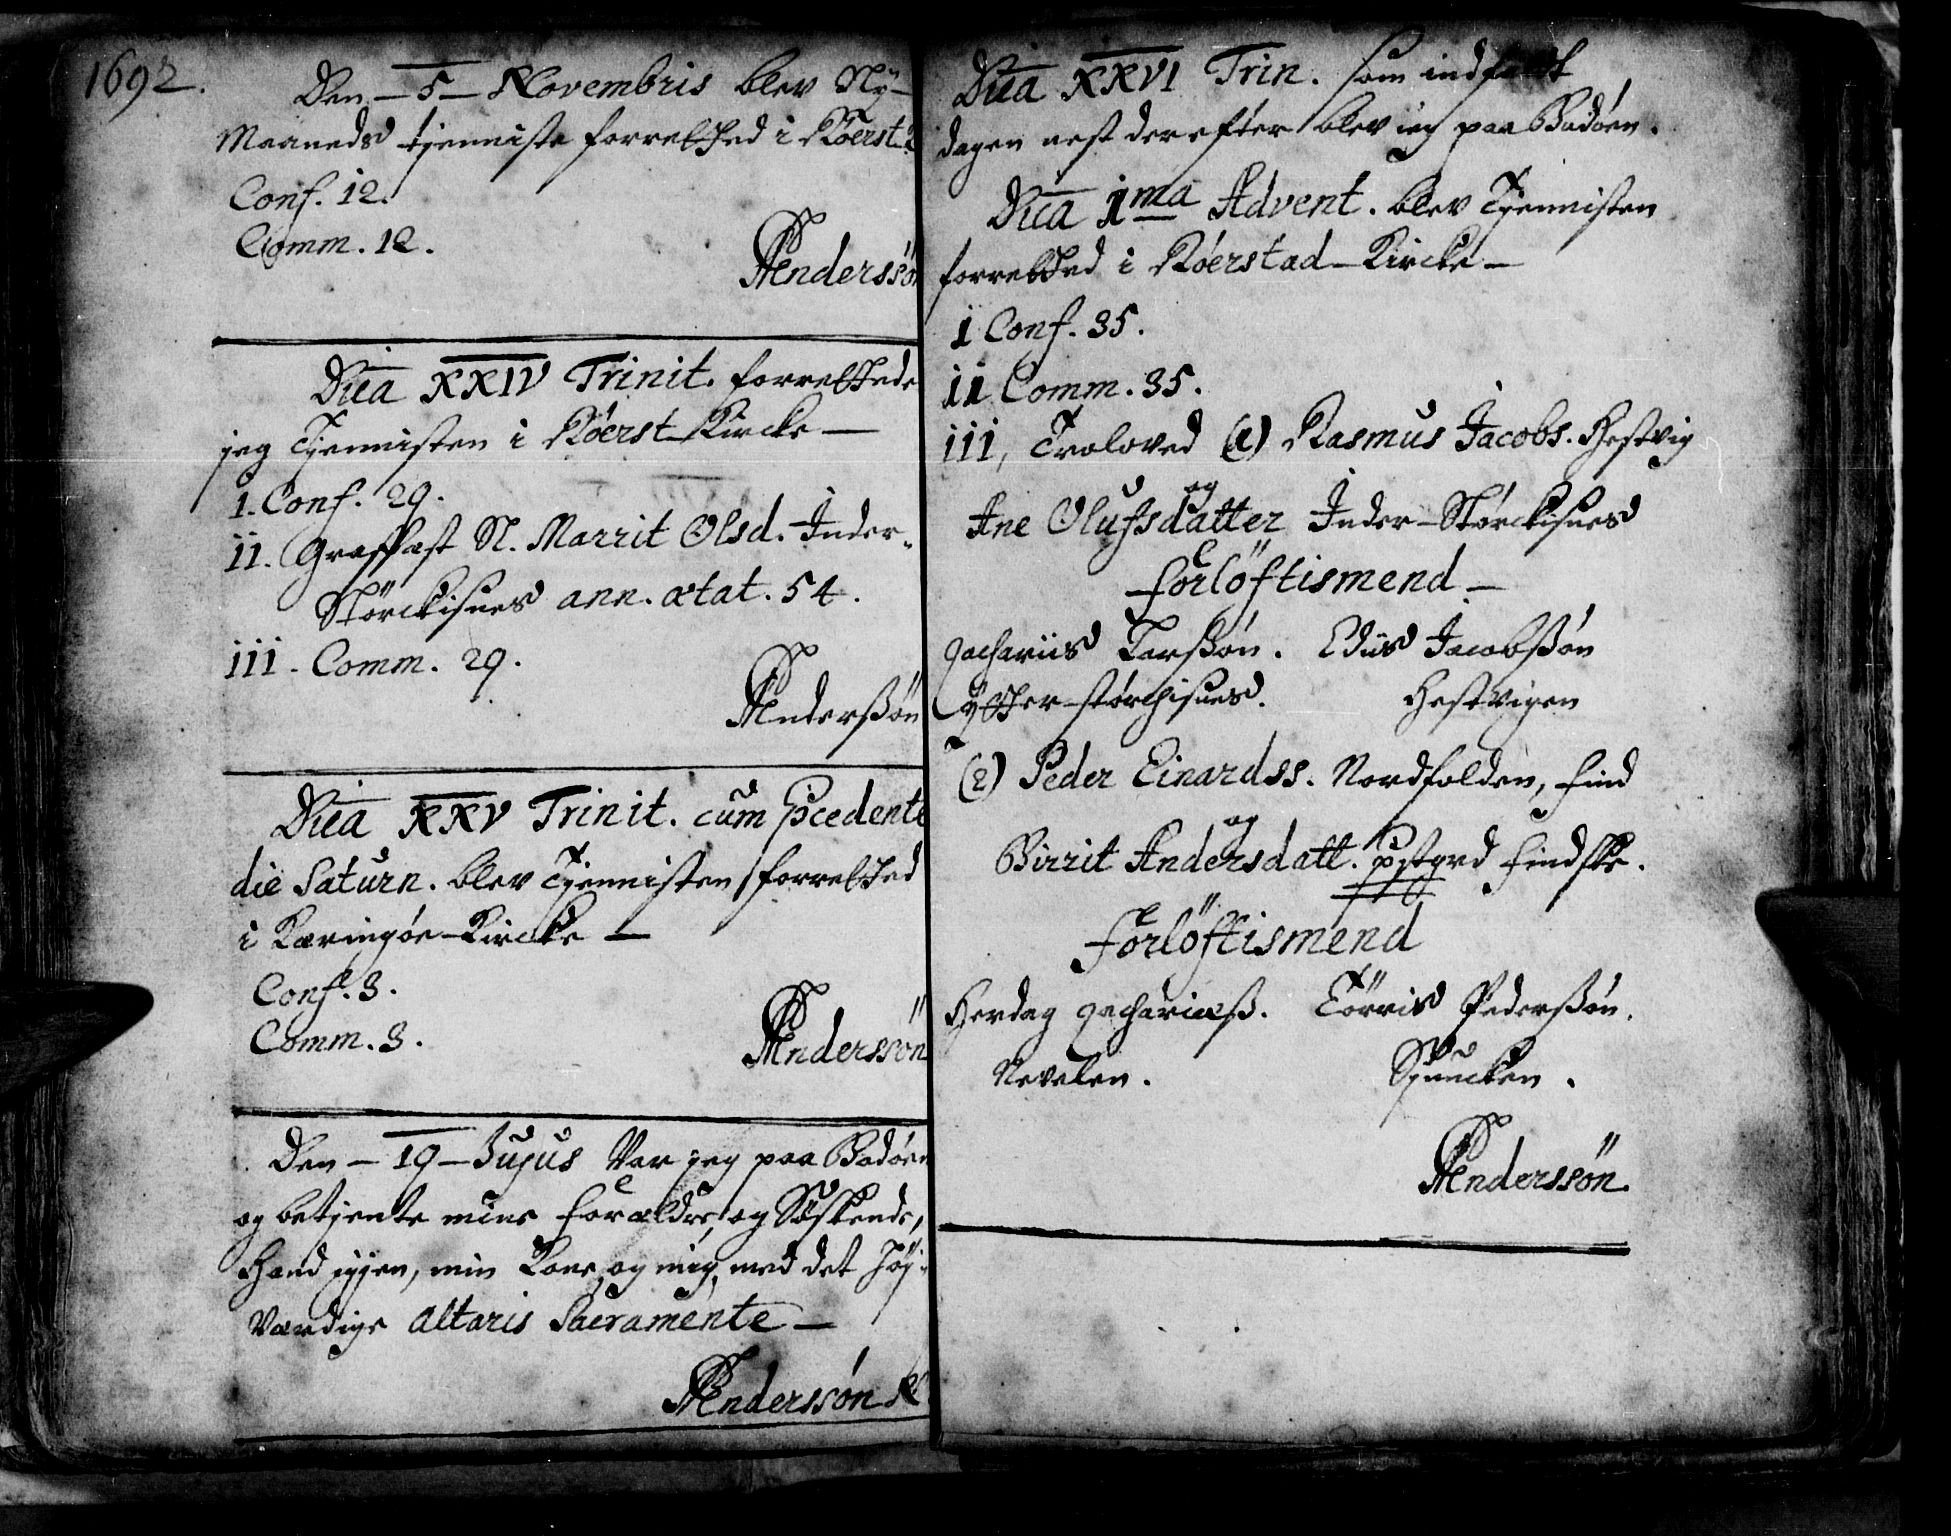 1692.
Den – 5 – Novembris blev Ny-
Maaneds tjenniste forretted i Röerst
Conf. 12.
Comm. 12.
Anderssön
Dica XXIV Trinit. forrettede
jeg Tjennisten i Röerst-Kircke —
1. Conf. 29.
ii. Graffæst S. Marrit Olsd. Inder-
Störckisnes ann. ætat. 54.
iii. Comm. 29.
Anderßön
Dica XXV Trinit. cum pcedente
die Saturn. blev Tjennisten forretted
i Kæringöe-Kircke —
Conf. 3.
Comm. 3.
Anderssön
Den – 19 – Var jeg paa Badöen
og betjente mine Foreldre, og Söskende,
Hand igjen, min Kone, og mig, med det höj-
Værdige altaris Sacramente —
Anderssön
Dica XXVI Trin. som indfaldt
dagen nest derefter blev ieg paa Badöen.
Dica 1ma Advent. blev Tjennisten
forretted i Röerstad-Kircke —
i Conf. 35.
ii Comm. 35.
iii, Troloved (1) Rasmus Jacobs. Hestvig
og
Ane Olufsdatter Inder-Störckisnes
forlöftismend —
Zachariis Larßön. Ediis Jacobßön
ytter-störchisnes. Hestvigen
(2) Peder Einardss. Nordfolden, find
og
Birrit Andersdatt. findske.
forlöftismend
Herdag Zachariæß. Törris Pederßön.
Nevelen. Siuncken.
Anderssön